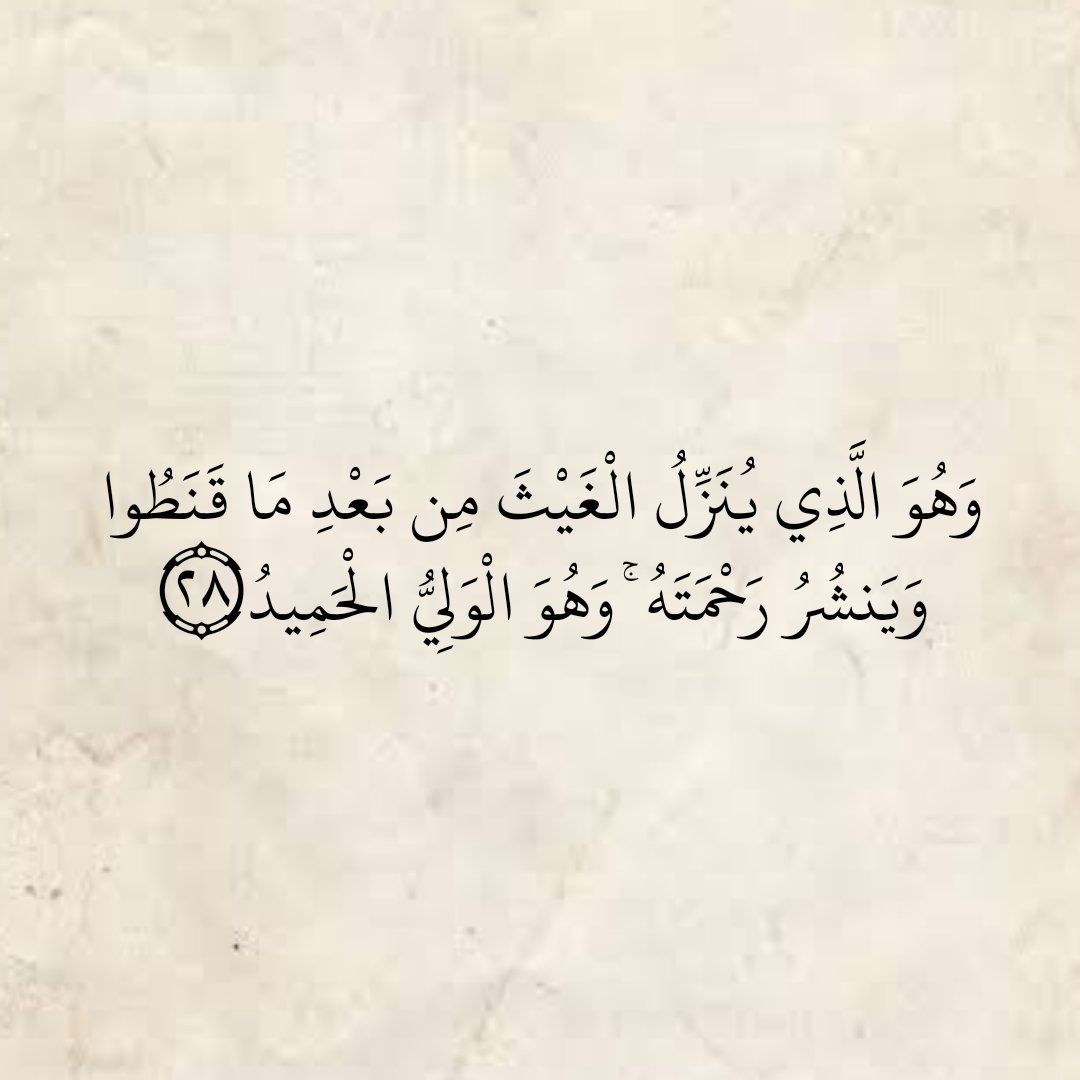 وَهُوَ الَّذِي يُنَزِّلُ الْغَيْثَ مِن بَعْدِ مَا قَنَطُوا
وَيَنشُرُ رَحْمَتَهُ ۚ وَهُوَ الْوَلِيُّ الْحَمِيدُ ۝٢٨